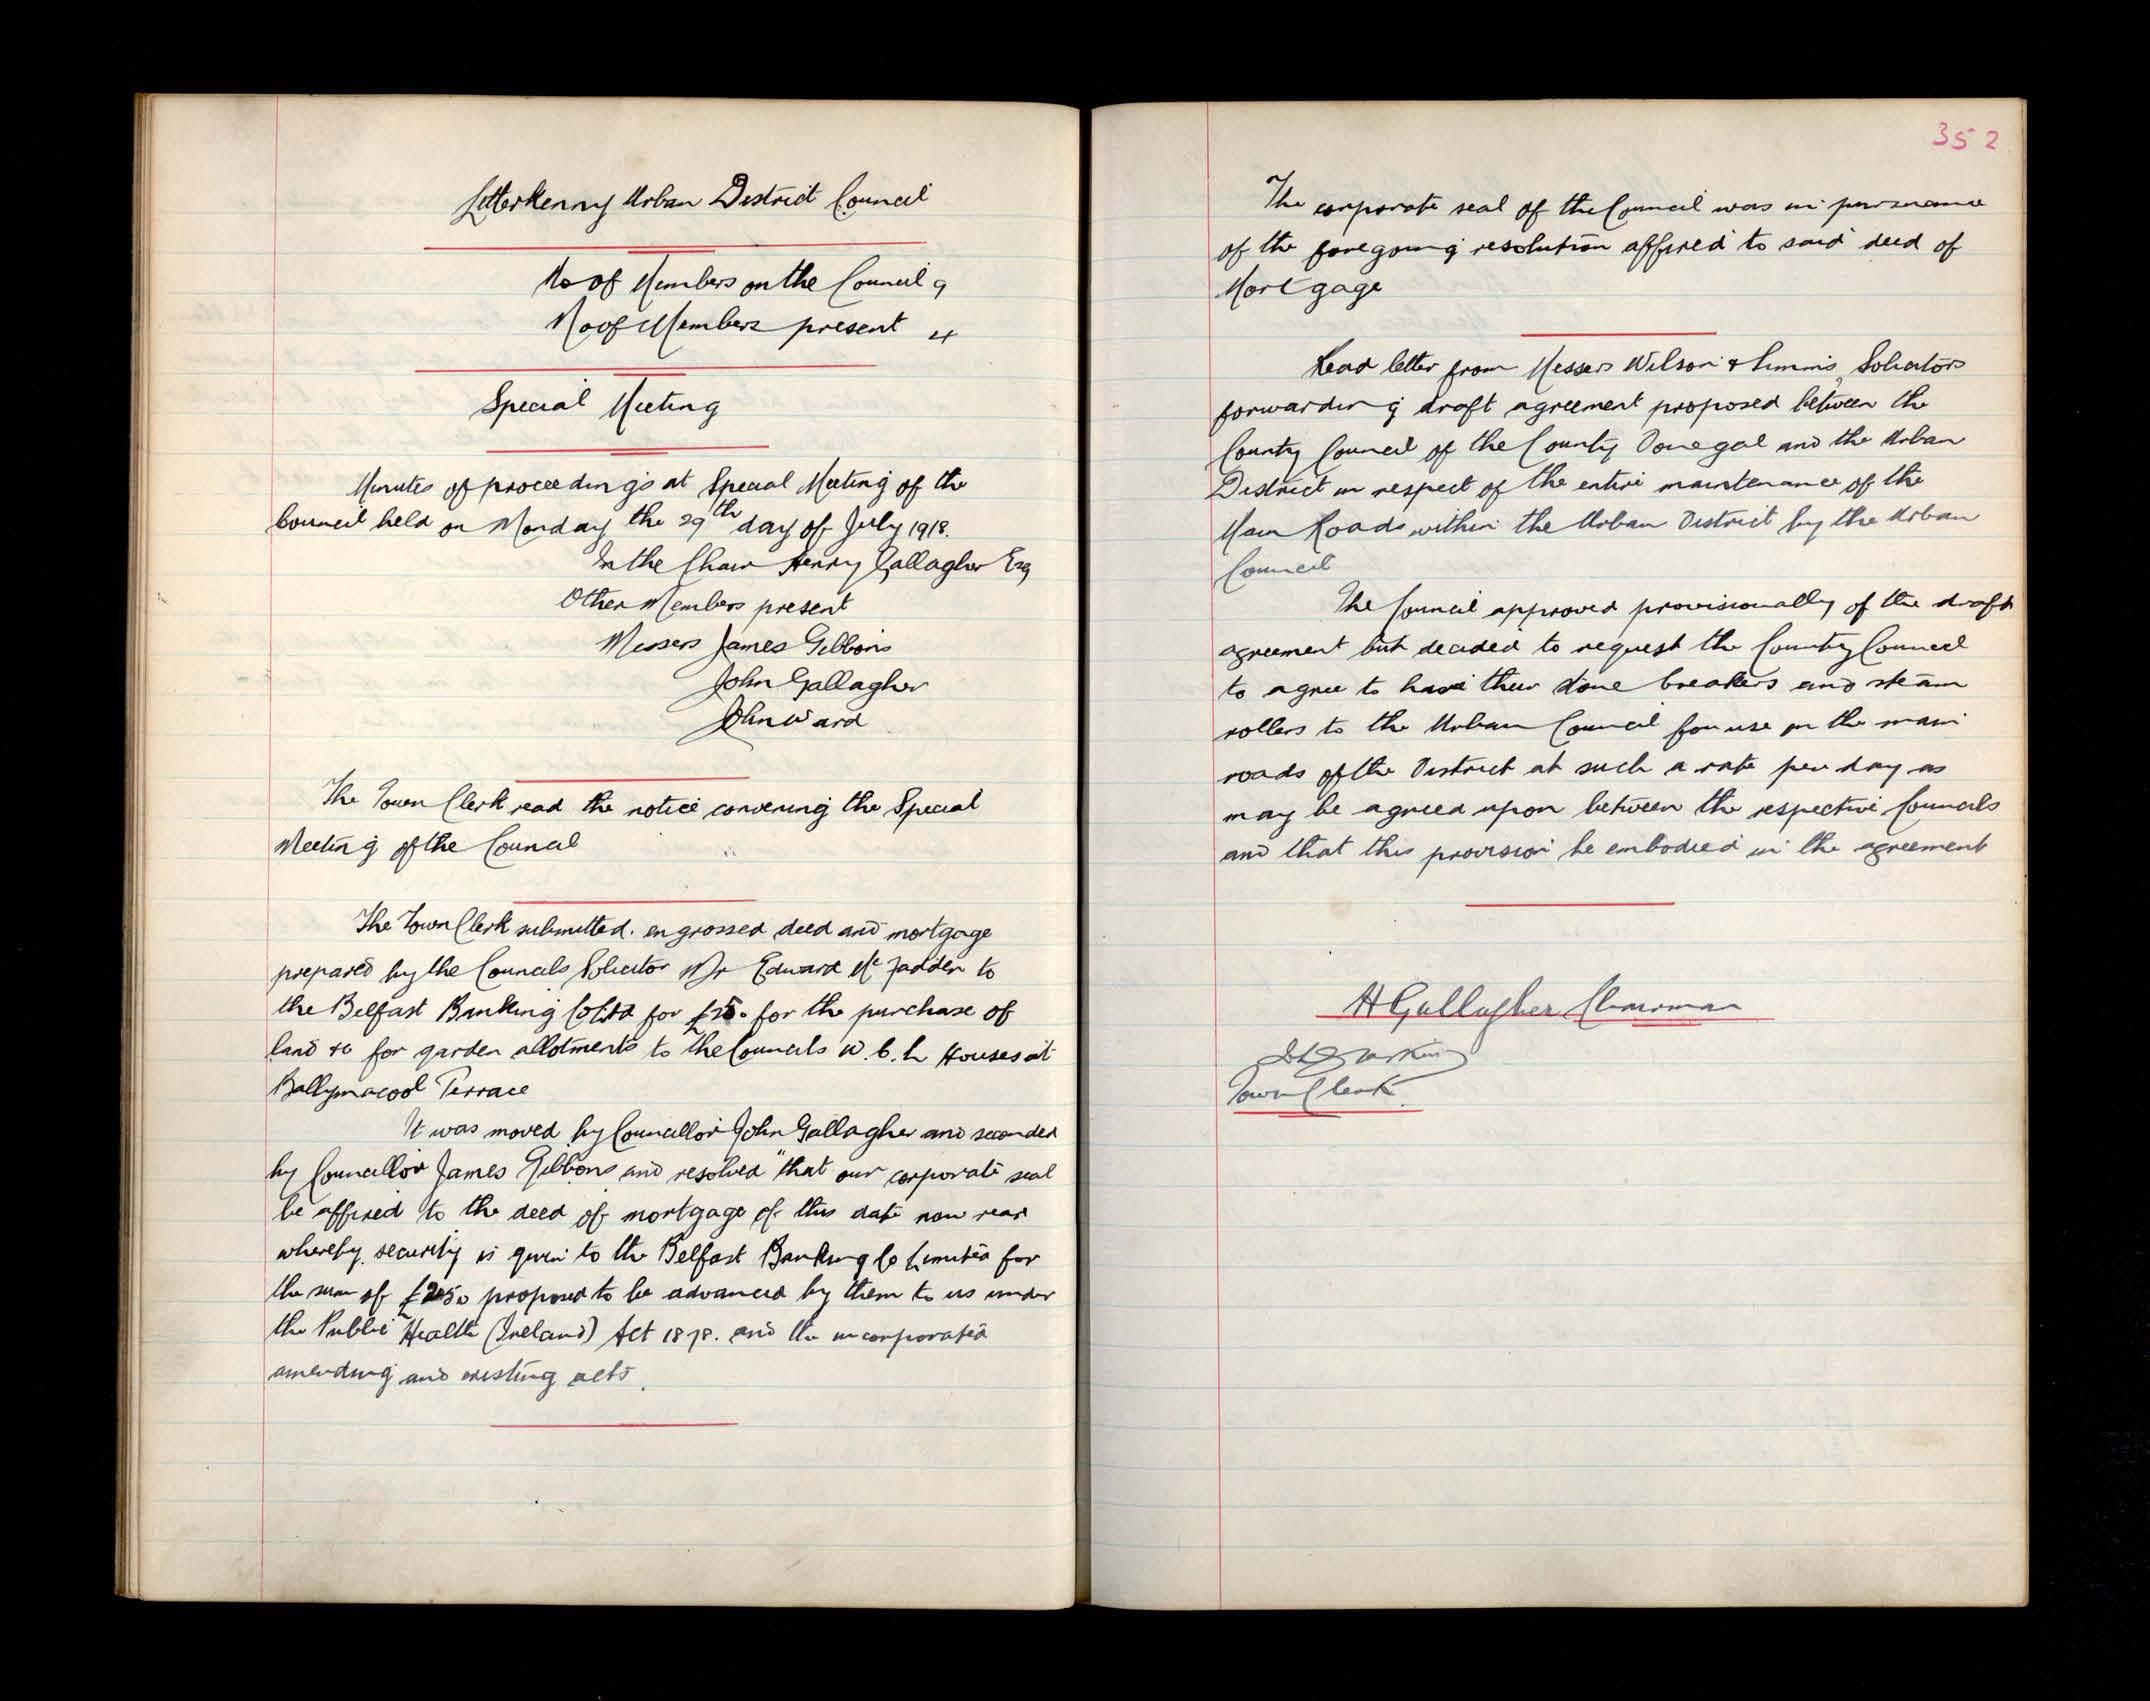 Letterkenny Urban District Council
No of Members on the Council 9
No of Members present 4
Special Meeting
Minutes of proceedings at Special Meeting of the
Council held on Monday the 29th day of July 1918.
In the Chair Henry Gallagher Esq
Other Members present
Messers James Gibbons
John Gallagher
John Ward
The Town Clerk read the notice convening the Special
Meeting of the Council
The Town Clerk submitted engrossed deed and mortgage
prepared by the Councils Solicitor Mr Edward Mc Fadden to
the Belfast Banking Co Ltd for for the purchase of
land &c for garden allotments to the Councils W.C.L Houses at
Ballymacool Terrace
It was moved by Councillor John Gallagher and seconded
by Councillor James Gibbons and resolved "that our corporate seal
be affixed to the deed of mortgage of this date now read
whereby security is given to the Belfast Banking Co Limited for
the sum of £250 proposed to be advanced by them to us under
the Public Health (Ireland) Act 1878. and the incorporated
amending and existing acts.
352
The corporate seal of the Council was in pursuance
of the foregoing resolution affixed to said deed of
Mortgage
Read letter from Messers Wilson & Simms, Solicitors
forwarding draft agreement proposed between the
County Council of the County Donegal and the Urban
District in respect of the entire maintenance of the
Main Roads within the Urban District by the Urban
Council
The Council approved provisionally of the draft
agreement but decided to request the County Council
to agree to their stone breakers and steam
rollers to the Urban Council for use on the main
roads of the District at such a rate per day as
may be agreed upon between the respective Councils
and that this provision be embodied in the agreement
H Gallagher Chairman
Town Clerk.